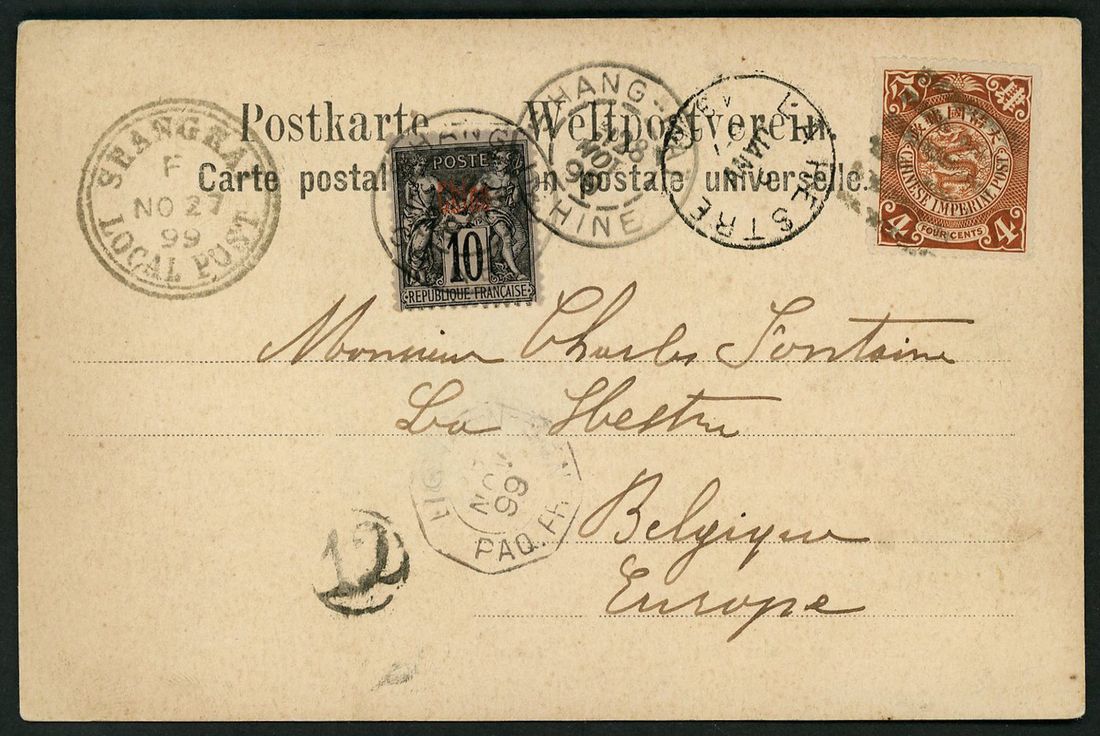 Postkarte Weltpostverein.
Carte postal on postale universelle.
SHANGHAI
F
NO 27
99
LOCAL POST
POSTE
10
REPUBLIQUE FRANÇAISE
HANG-
28
NOV
99
CHINE
LA HESTRE
JANV
大清國郵政
CHINESE IMPERIAL POST
4 FOUR CENTS 4
Monsieur Charles Fontaine
La Hestre
Belgique
Europe
LIGN
NOV
99
PAQ. FR.
12